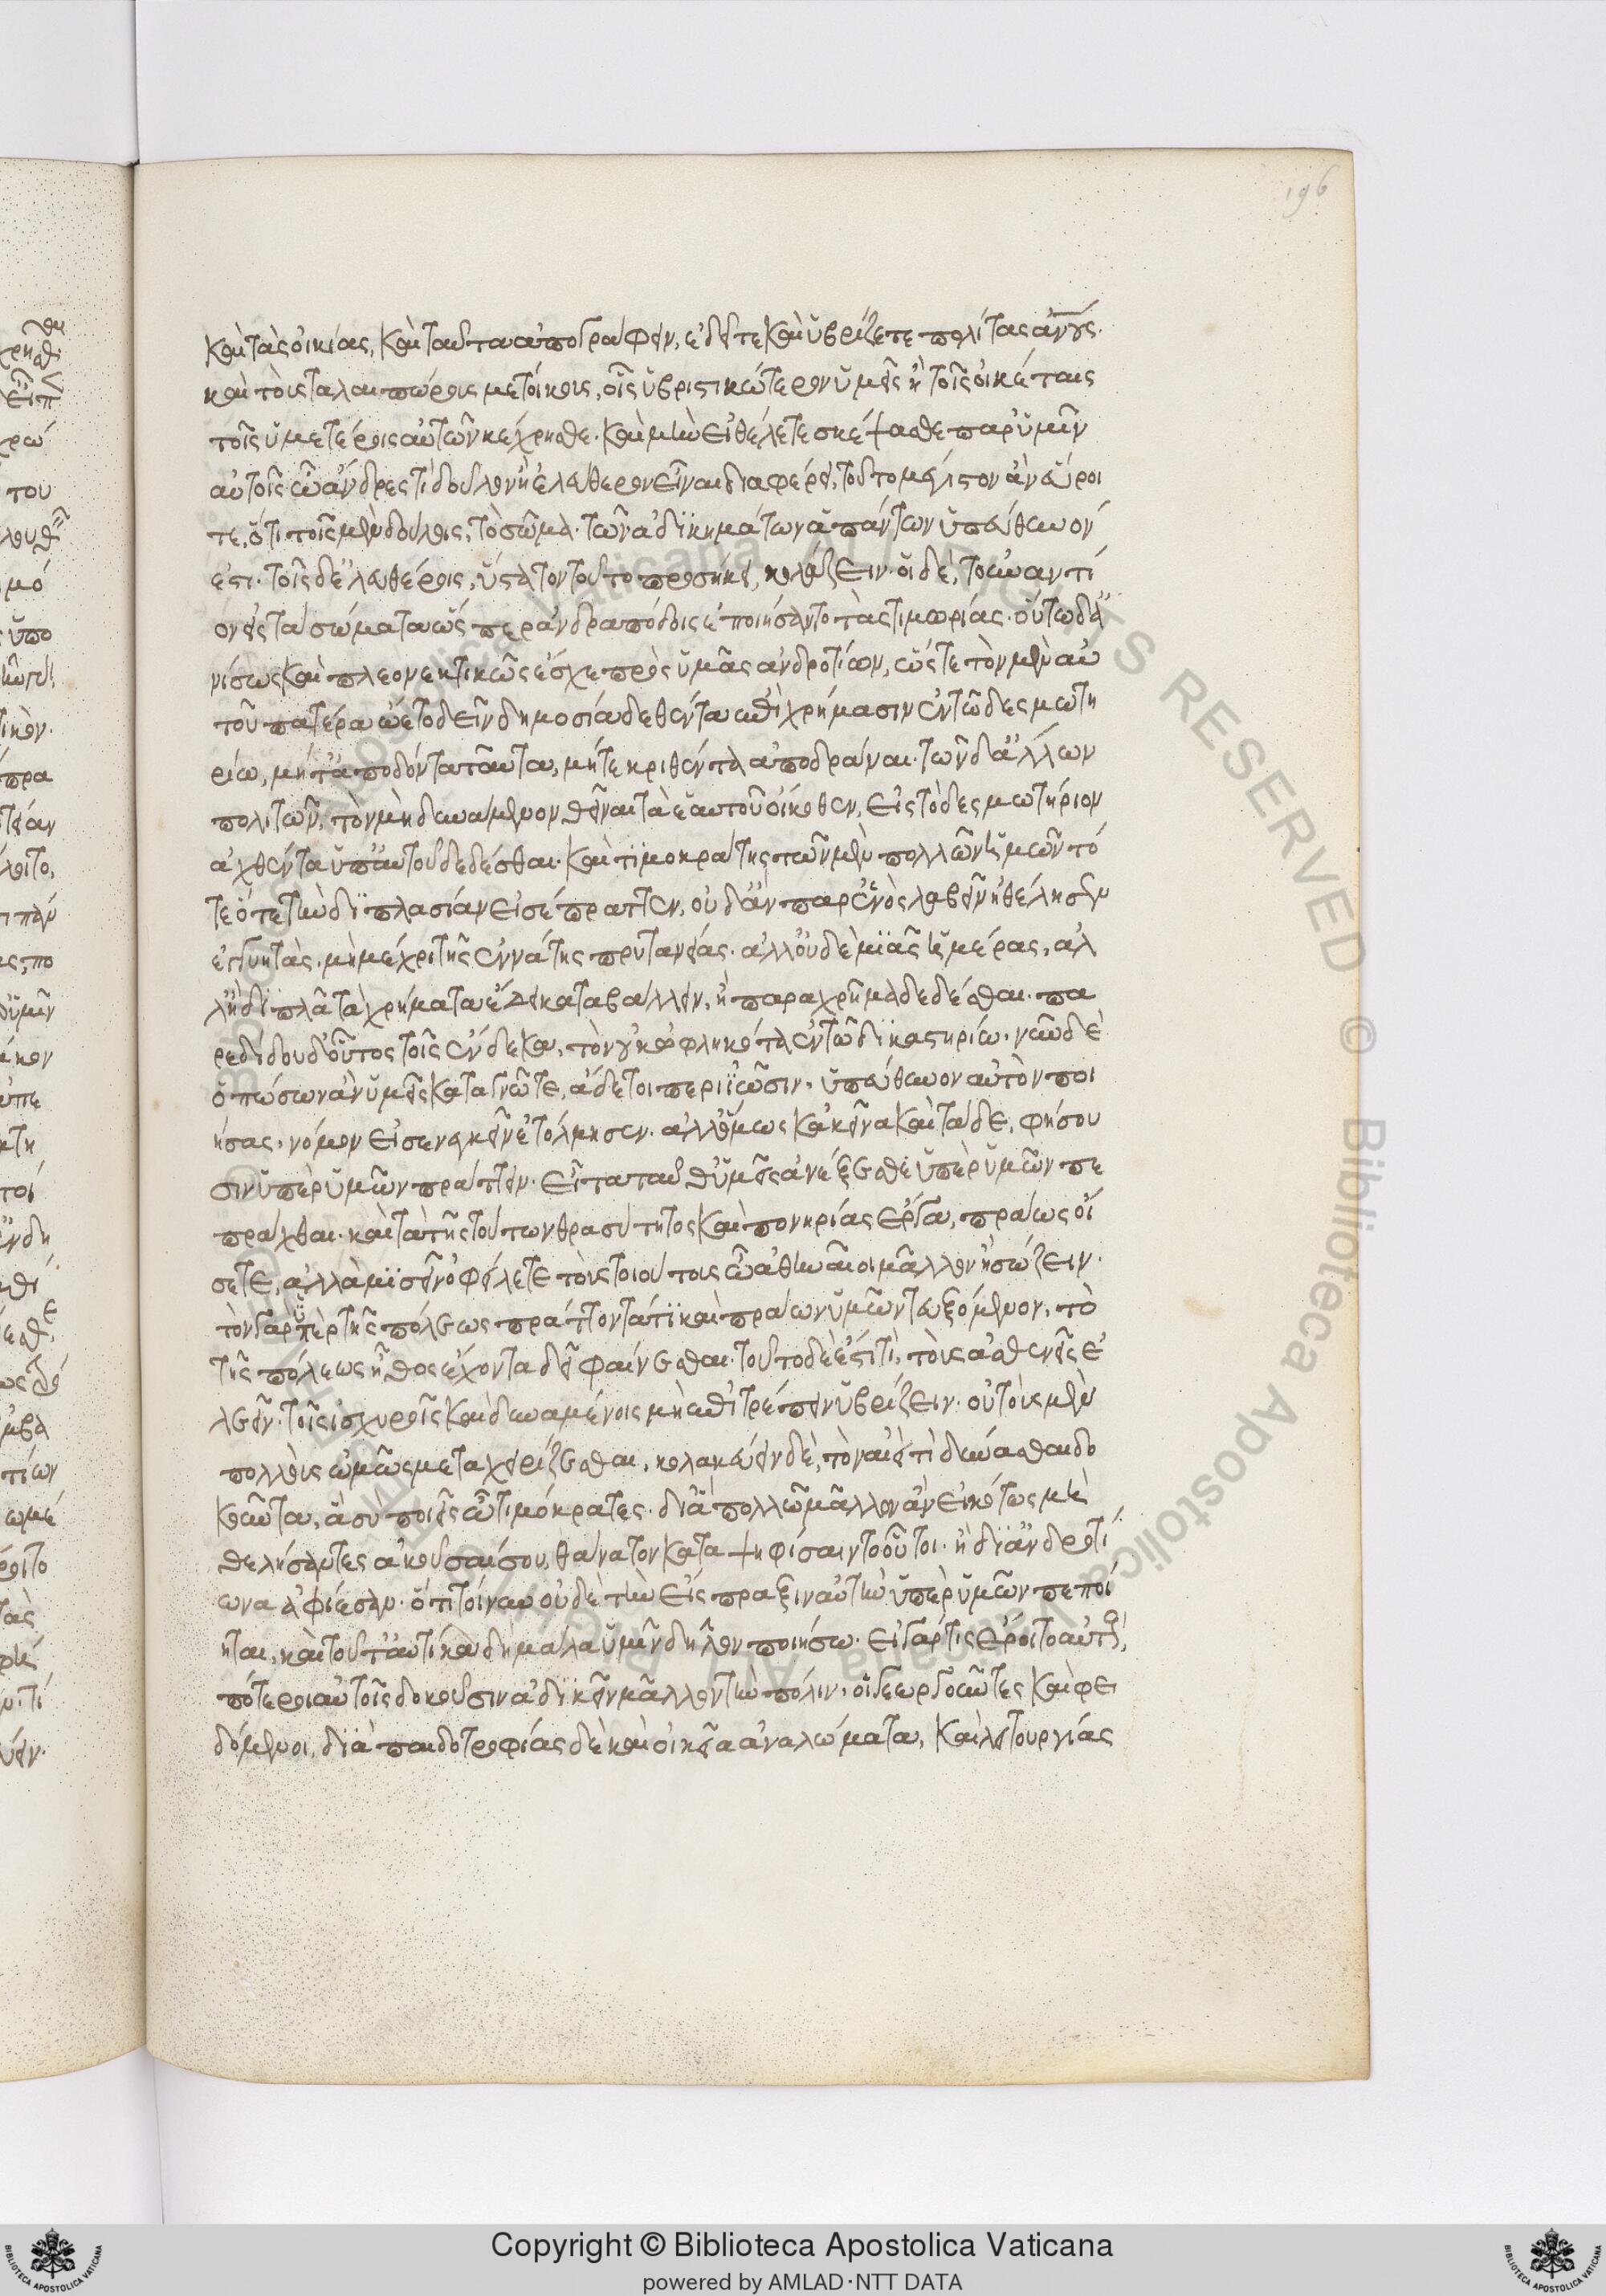 196
καὶ τὰς οἰκίας, καὶ ταῦτα ἀπογράφειν, ἐδεῖτε καὶ ὑβρίζετε πολίτας ἀνους·
καὶ τοὺς ταλαιπώρους μετοίκους, οἷς ὑβριστικώτερον ὑμεῖς ἢ τοῖς οἰκέταις
τοῖς ὑμετέροις αὐτῶν κέχρησθε. καὶ μὴν εἰ θέλετε σκέψασθε παρ' ὑμῖν
αὐτοῖς ὦ ἄνδρες τί δοῦλον ἢ ἐλεύθερον εἶναι διαφέρει, τοῦτο μέγιστον ἂν εὕροι
τε, ὅτι τοῖς μὲν δούλοις, τὸ σῶμα τῶν ἀδικημάτων ἁπάντων ὑπεύθυνόν
ἐστι. τοῖς δ' ἐλευθέροις, ὕστατον τοῦτο προσήκει κολάζειν. οἱ δὲ, τοὐναντί
ον εἰς τὰ σώματα ὥσπερ ἀνδραπόδοις ἐποιήσαντο τὰς τιμωρίας. οὕτω δ' ἀ
νίσως καὶ πλεονεκτικῶς ἔσχε πρὸς ὑμᾶς ἀνδροτίων, ὥστε τὸν μὲν αὑ
τοῦ πατέρα ᾤετο δεῖν δημοσίᾳ δεθέντα ἐπὶ χρήμασιν ἐν τῷ δεσμωτη
ρίῳ, μήτ' ἀποδόντα ταῦτα, μήτε κριθέντα ἀποδρᾶναι. τῶν δ' ἄλλων
πολιτῶν, τὸν μὴ δυνάμενον θεῖναι τὰ ἑαυτοῦ οἴκοθεν, εἰς τὸ δεσμωτήριον
ἀχθέντα ὑπ' αὐτοῦ δεδέσθαι. καὶ τιμοκράτης τῶν μὲν πολλῶν ἡμῶν τό
τε ὅτε τὴν διπλασίαν εἰσέπραττεν, οὐδ' ἂν παρ' ἑνὸς λαβεῖν ἠθέλησεν
ἐγγυητὰς. μὴ μέχρι τῆς ἐννάτης πρυτανείας. ἀλλ' οὐδὲ μιᾶς ἡμέρας, ἀλ
λ' ἢ διπλᾶ τὰ χρήματα ἔδει καταβάλλειν, ἢ παραχρῆμα δεδέσθαι. πα
ρεδίδου δ' οὗτος τοῖς ἕνδεκα, τὸν οὐκ ὠφληκότα ἐν τῷ δικαστηρίῳ. νῦν δὲ
ὅπως ὧν ἂν ὑμεῖς καταγνῶτε, ἄδετοι περιΐωσιν, ὑπεύθυνον αὑτὸν ποι
ήσας, νόμον εἰσενεγκεῖν ἐτόλμησεν. ἀλλ' ὅμως κἀκεῖνα καὶ τάδε, φήσου
σιν ὑπὲρ ὑμῶν πράττειν. εἶτα ταῦθ' ὑμεῖς ἀνέξεσθε ὑπὲρ ὑμῶν πε
πρᾶχθαι. καὶ τὰ τῆς τούτων θρασύτητος καὶ πονηρίας ἔργα, πράως οἴ
σετε, ἀλλὰ μισεῖν ὀφείλετε τοὺς τοιούτους ὦ ἀθηναῖοι μᾶλλον ἢ σώζειν.
τὸν γὰρ ὑπὲρ τῆς πόλεως πράττοντά τι καὶ πράων ὑμῶν τευξόμενον, τὸ
τῆς πόλεως ἦθος ἔχοντα δεῖ φαίνεσθαι. τοῦτο δὲ ἔστι τί, τοὺς ἀσθενεῖς ἐ
λεεῖν. τοῖς ἰσχυροῖς καὶ δυναμένοις μὴ ἐπιτρέπειν ὑβρίζειν. οὐ τοὺς μὲν
πολλοὺς ὠμῶς μεταχειρίζεσθαι, κολακεύειν δὲ, τὸν αἰεί τι δύνασθαι δο
κοῦντα, ἃ σὺ ποιεῖς ὦ τιμόκρατες. δι' ἃ πολλῷ μᾶλλον ἂν εἰκότως μὴ
θελήσαντες ἀκοῦσαί σου, θάνατον καταψηφίσαιντο οὗτοι. ἢ δι' ἀνδροτί
ωνα ἀφίεσαν. ὅτι τοίνυν οὐδὲ τὴν εἴσπραξιν αὐτὴν ὑπὲρ ὑμῶν πεποί
ηται, καὶ τοῦτ' αὐτίκα δὴ μάλα ὑμῖν δῆλον ποιήσω. εἰ γάρ τις ἔροιτο αὐτού,
πότεροι αὐτοῖς δοκοῦσιν ἀδικεῖν μᾶλλον τὴν πόλιν, οἱ γεωργοῦντες καὶ φει
δόμενοι, διὰ παιδοτροφίας δὲ καὶ οἰκεῖα ἀναλώματα, καὶ λειτουργίας